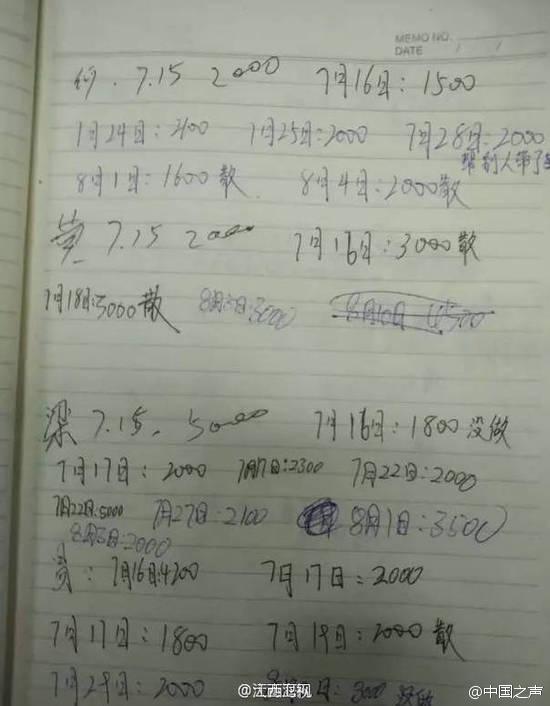 MEMO NO.
DATE / /
7.15 2000 7月16日:1500
1月24日:2100 1月25日:2000 7月28日:2000
帮别人带了
8月1日:1600散 8月4日:2000散
黄 7.15 2000 7月16日:3000散
7月18日:5000散 8月3日:3000 8月10日 4500
梁 7.15. 5000 7月16日:1800没做
7月17日:2000 7月17日:2300 7月22日:2000
7月22日:5000 7月27日:2100 8月1日:3500
8月3日:2000
员:7月16日:4200 7月17日:2000
7月17日:1800 7月19日:2000散
7月29日:2000 日:3000 没做
@江西卫视
@中国之声